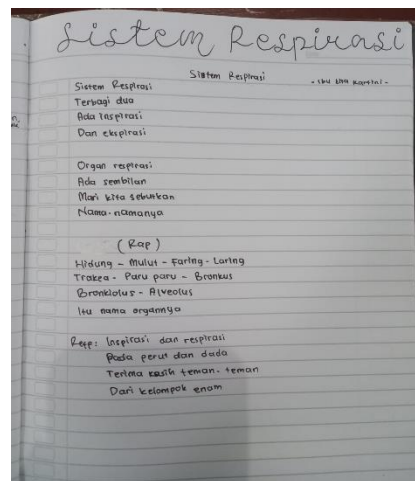 Sistem Respirasi
Sistem Respirasi
- ibu kita kartini -
Sistem Respirasi
Terbagi dua
Ada inspirasi
Dan ekspirasi
Organ respirasi
Ada sembilan
Mari kita sebutkan
Nama-namanya
(Rap)
Hidung - Mulut - Faring - Laring
Trakea - Paru paru - Bronkus
Bronkiolus - Alveolus
Itu nama organnya
Reff: Inspirasi dan respirasi
Pada perut dan dada
Terima kasih teman-teman
Dari kelompok enam